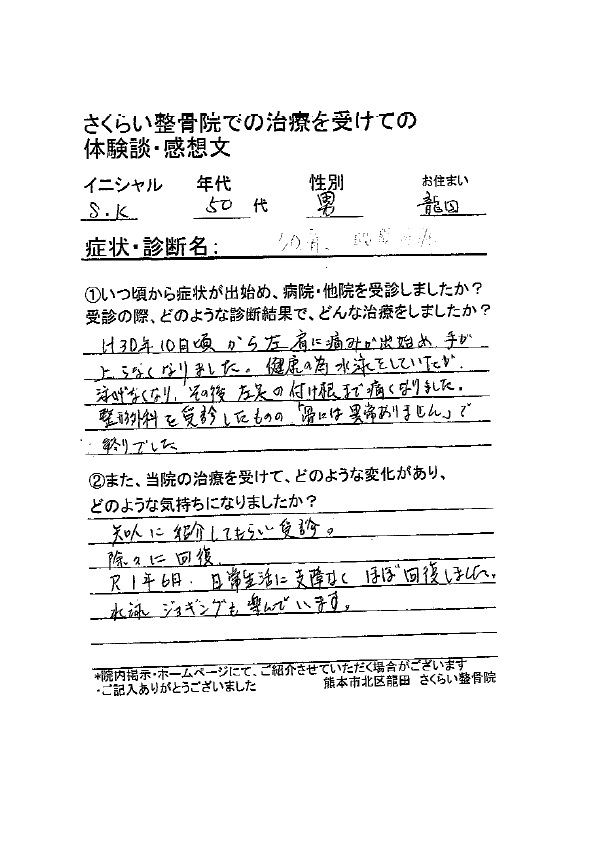 さくらい整骨院での治療を受けての
体験談・感想文
イニシャル 年代 性別 お住まい
S.K 50代 男 龍田
症状・診断名:
①いつ頃から症状が出始め、病院・他院を受診しましたか?
受診の際、どのような診断結果で、どんな治療をしましたか?
H30年10月頃から左肩に痛みが出始め、手が
上らなくなりました。健康の為水泳をしていたが、
泳げなくなり、その後左足の付け根まで痛くなりました。
整形外科を受診したものの「骨には異常ありません」で
終りでした
②また、当院の治療を受けて、どのような変化があり、
どのような気持ちになりましたか?
知人に紹介してもらい受診。
除々に回復、
R1年6月、日常生活に支障なくほぼ回復しました。
水泳、ジョギングも楽んでいます。
*院内掲示・ホームページにて、ご紹介させていただく場合がございます
・ご記入ありがとうございました 熊本市北区龍田 さくらい整骨院